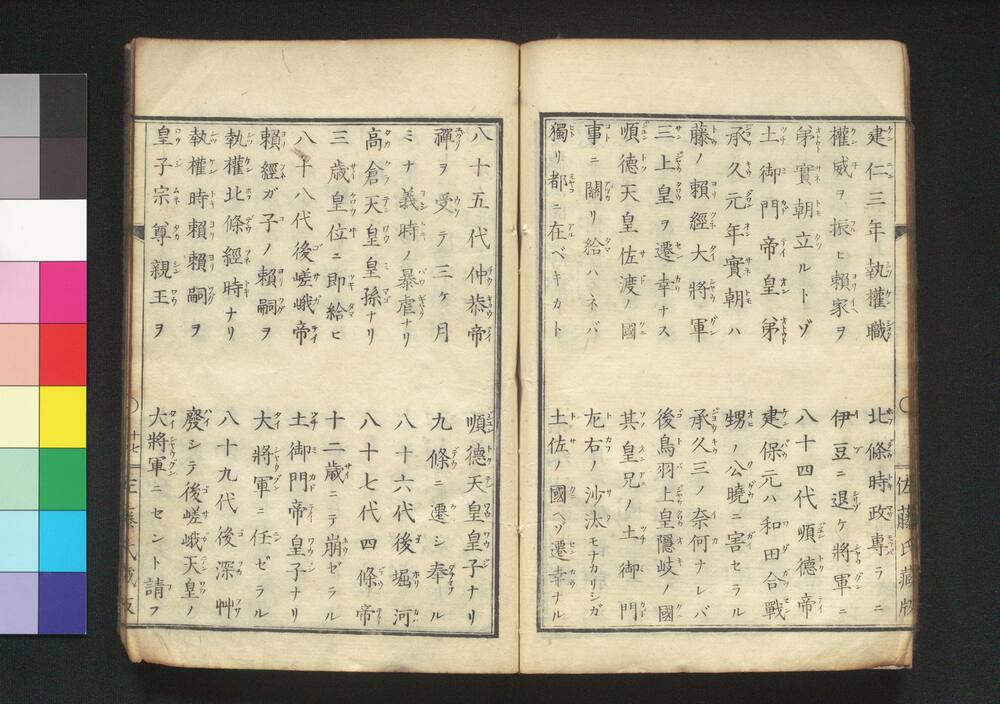 建仁三年執權職 北條時政專ラニ
權威ヲ振ヒ賴家ヲ 伊豆ニ退ケ將軍ニ
弟實朝立ルトゾ 八十四代順德帝
土御門帝皇弟 建保元ハ和田合戰
承久元年實朝ハ 甥ノ公曉ニ害セラル
藤ノ賴經大將軍 承久三ノ奈何ナレバ
三上皇ヲ遷幸ナス 後鳥羽上皇隱岐ノ國
順德天皇佐渡ノ國 其皇兄ノ土御門
事ニ關リ給ハネバ 尢右ノ沙汰モナカリシガ
獨リ都ニ在ベキカト 土佐ノ國ヘゾ遷幸ナル
佐藤氏藏版
八十五代仲恭帝 順德天皇皇子ナリ
禪ヲ受テ三ケ月 九條ニ遷シ奉ル
ミナ義時ノ暴虐ナリ 八十六代後堀河
高倉天皇皇孫ナリ 八十七代四條帝
三歳皇位ニ即給ヒ 十二歳ニテ崩ゼラル
八十八代後嵯峨帝 土御門帝皇子ナリ
賴經ガ子ノ賴嗣ヲ 大將軍ニ任ゼラル
執權北條經時ナリ 八十九代後深艸
執權時賴賴嗣ヲ 廢シテ後嵯峨天皇ノ
皇子宗尊親王ヲ 大將軍ニセント請フ
十七
佐藤氏藏版